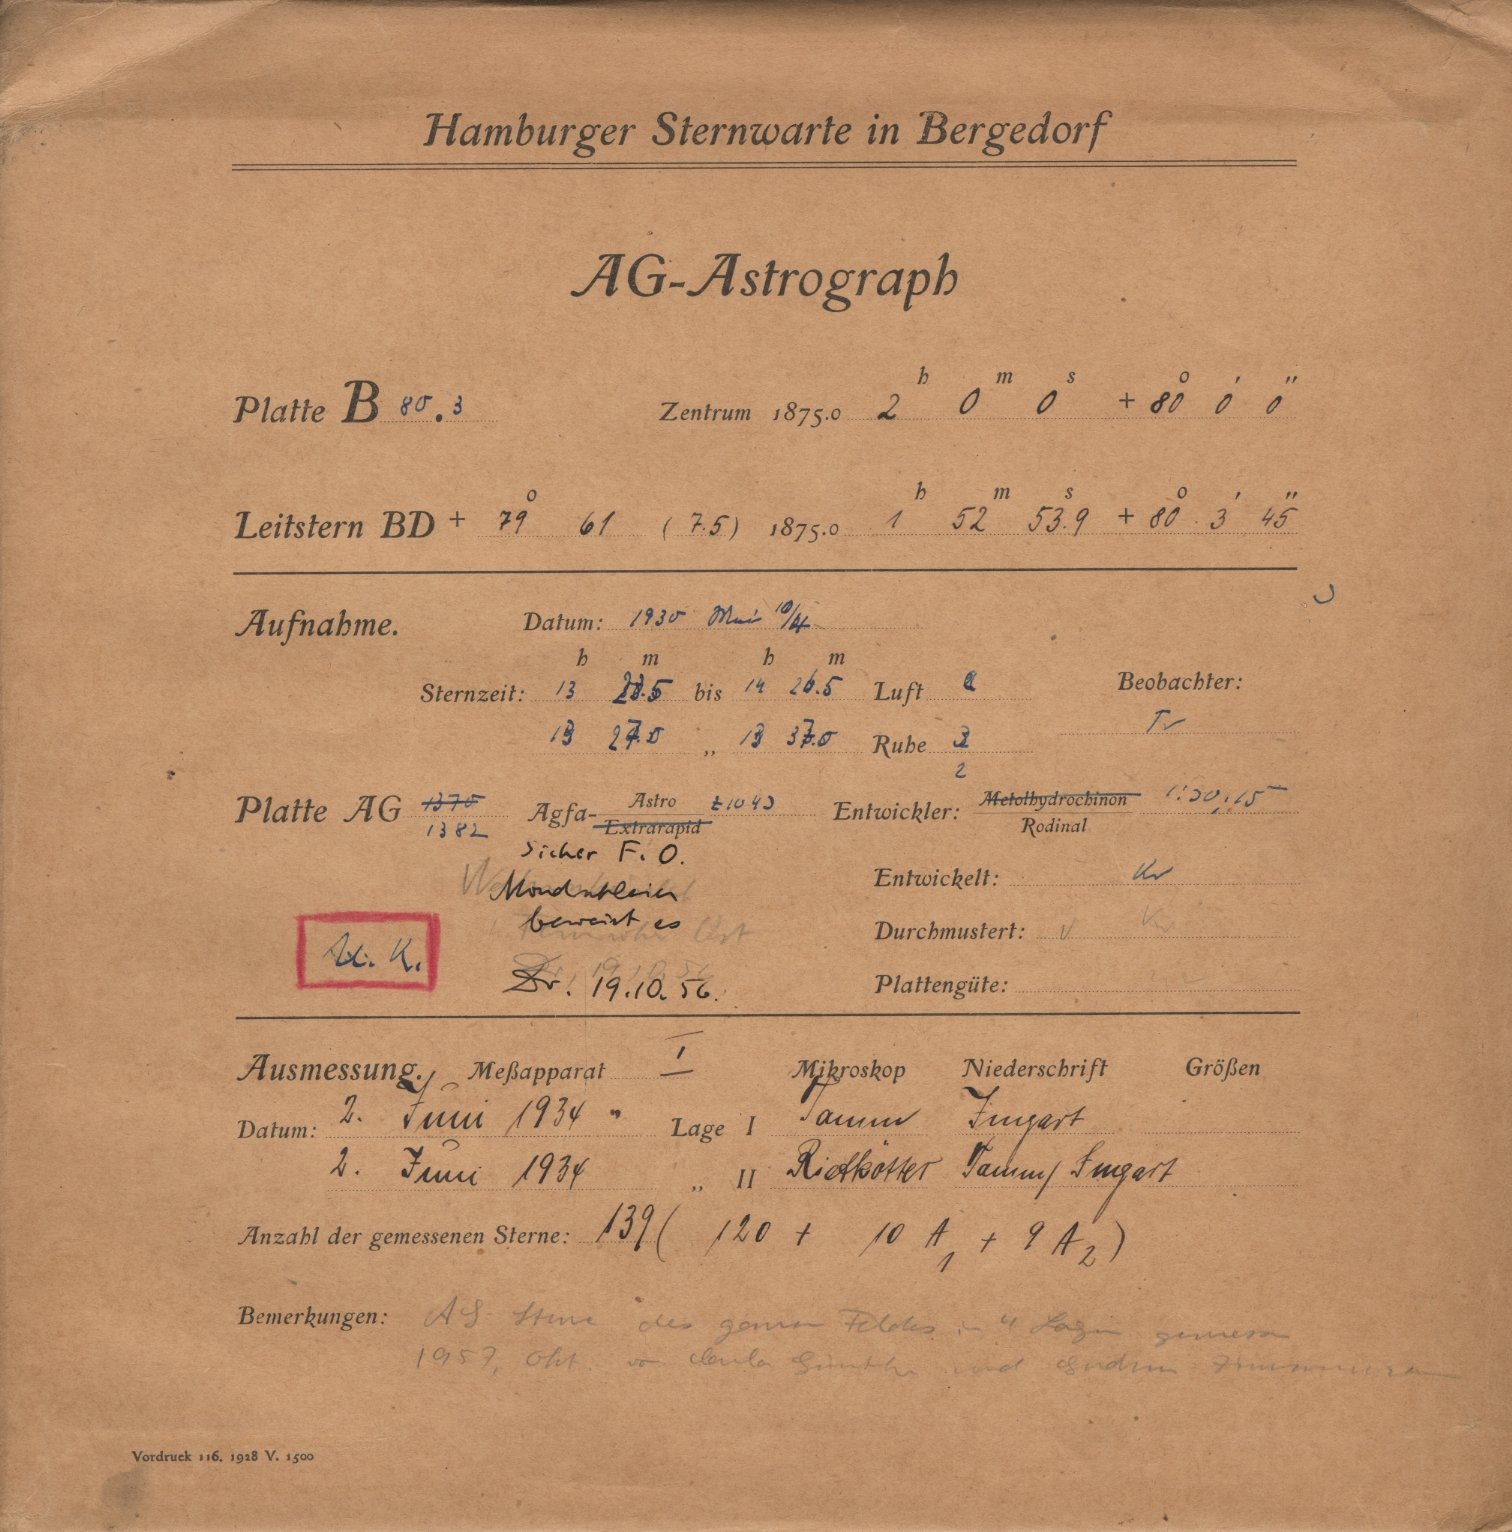 Hamburger Sternwarte in Bergedorf
AG-Astrograph
Platte B 80.3 Zentrum 1875.0 2 h 0 m 0 s + 80 o 0 ' 0 "
Leitstern BD + 79 o 61 (7.5) 1875.0 1 h 52 m 53.9 s + 80 o 3 ' 45 "
Aufnahme. Datum: 1930 Mai
h m h m
Sternzeit: 13 bis 14 26.5 Luft Beobachter:
13 „ 13 Ruhe Tr
2
Platte AG 1370 Agfa- Astro Extrarapid Entwickler: Metolhydrochinon Rodinal 1:30; 15
1382
Sicher F. O.
Mondschein
beweist es
Entwickelt: Kr
Durchmustert: Kr
Plattengüte:
A. K.
Dr. 19.10.56.
Ausmessung. Meßapparat I Mikroskop Niederschrift Größen
Datum: 2. Juni 1934 Lage I Tamm Imgart
2. Juni 1934 „ II Rietkötter Tamm/Imgart
Anzahl der gemessenen Sterne: 139 ( 120 + 10 A1 + 9 A2 )
Bemerkungen: AG Sterne des ganzen Feldes in 4 Lagen gemessen
1957, Okt. von und
Vordruck 116. 1928 V. 1500